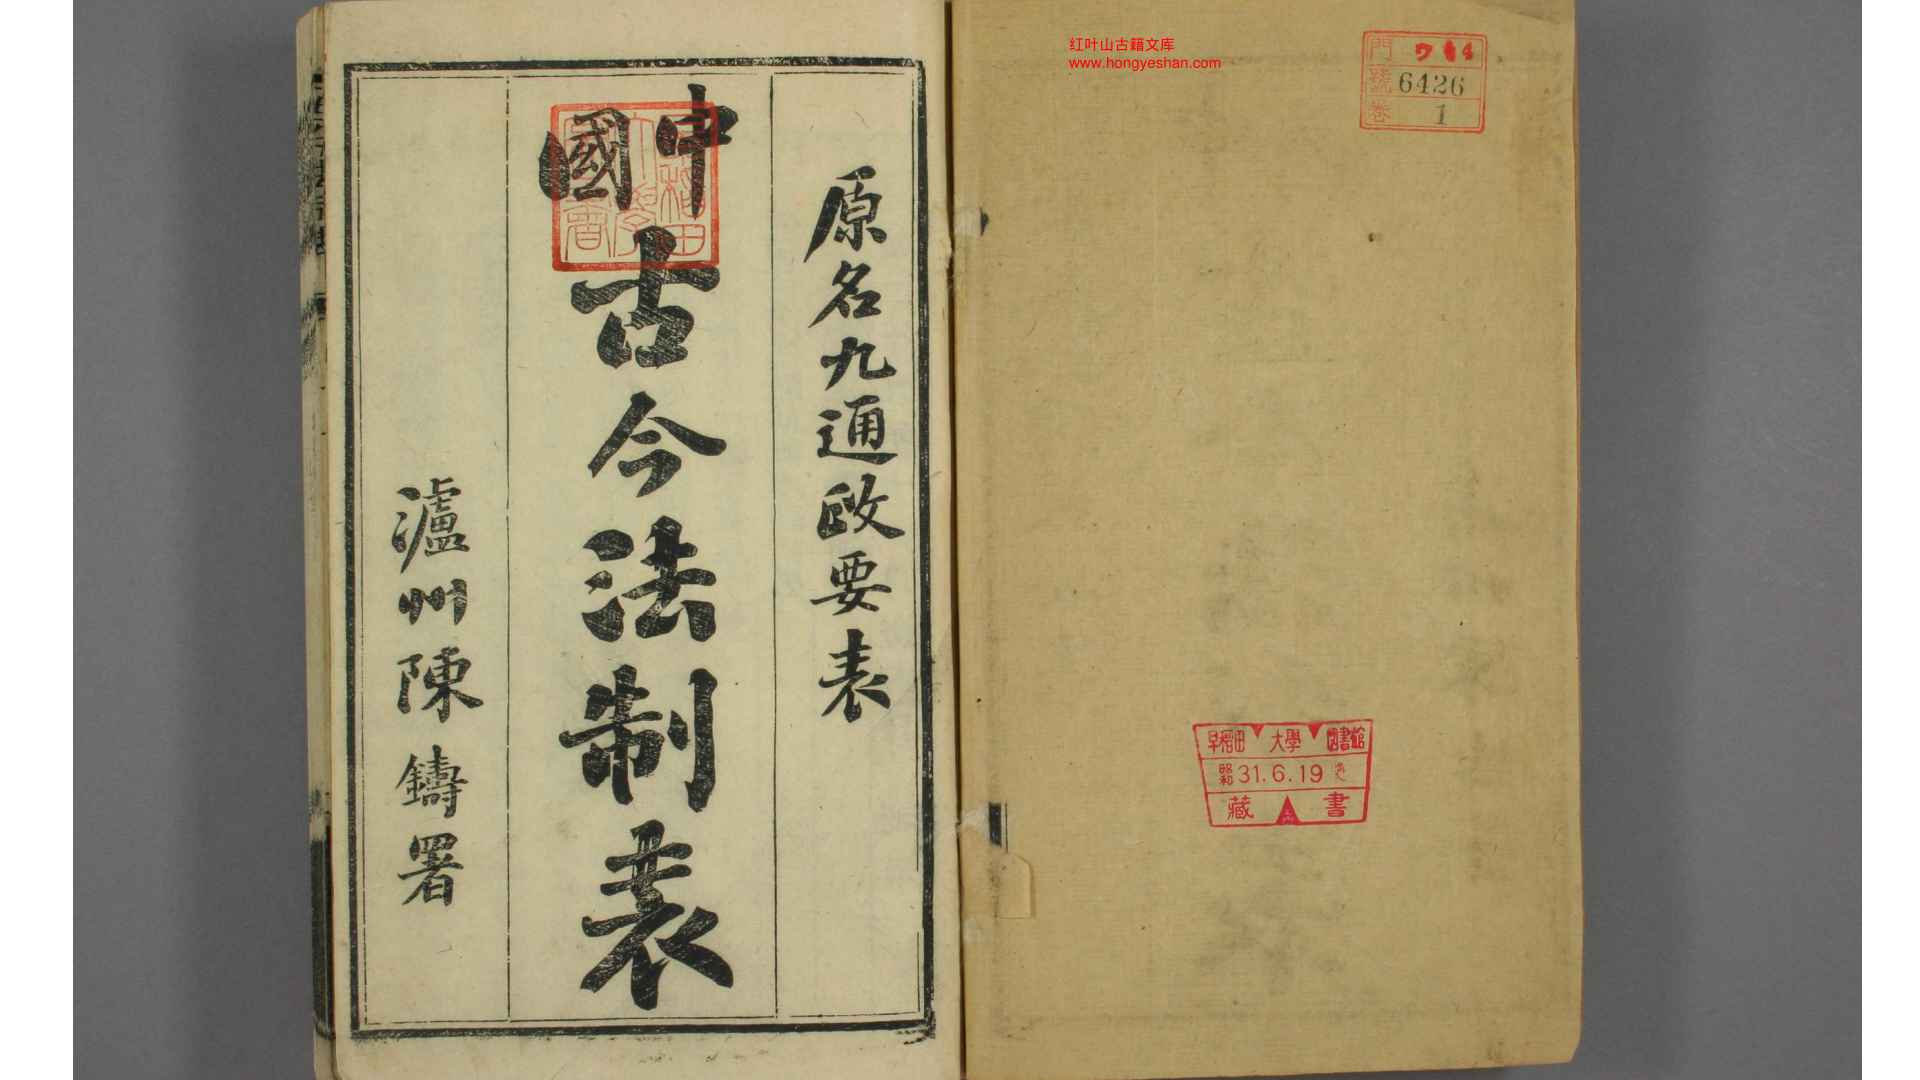 红叶山古籍文库
www.hongyeshan.com
門
號 6426
巻 1
原名九通政要表
中國古今法制表
瀘州陳鑄署
早稲田大學圖書館
昭和31.6.19
藏書